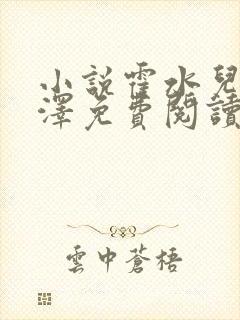 小説霍水兒
澤免費閱讀
雲中蒼梧